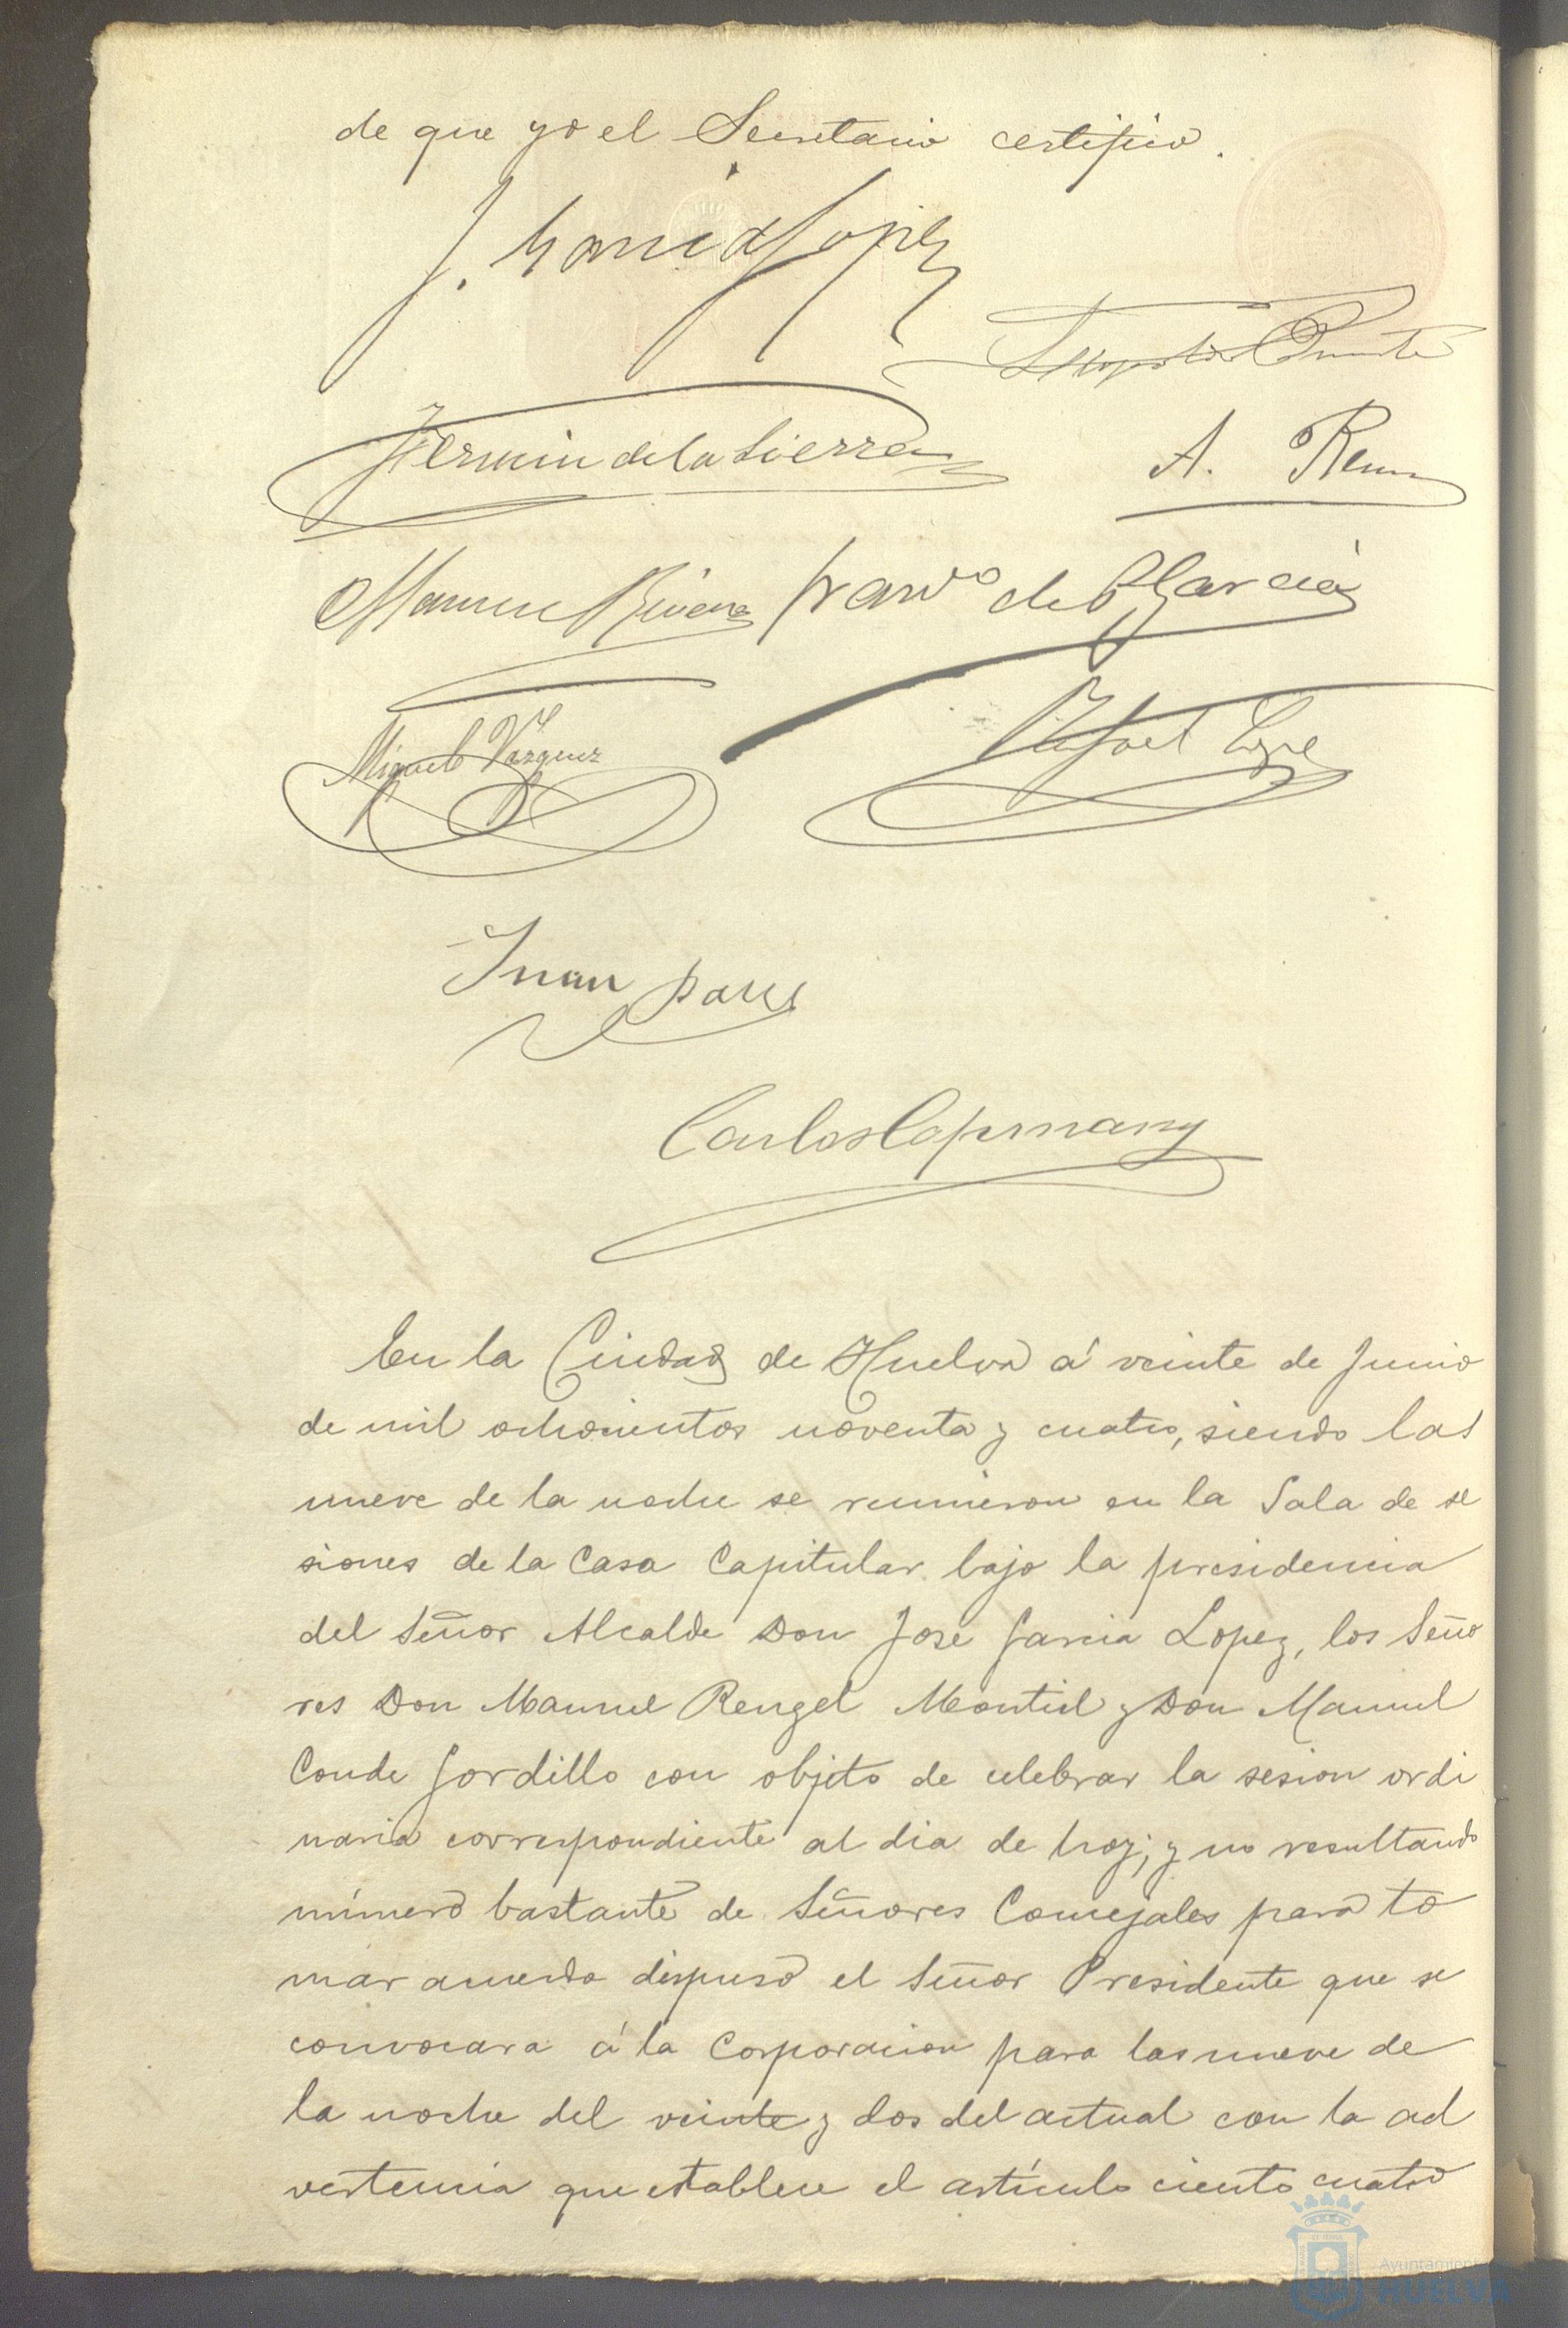 de que yo el Secretario certifico.
J. Garcia Lopez
Fermin de la Sierra
A.
Manuel Rivera Franco de P. Garcia
Miguel Vazquez
Rafael
Juan
Carlos Capmany
En la Ciudad de Huelva á veinte de Junio
de mil ochocientos noventa y cuatro, siendo las
nueve de la noche se reunieron en la Sala de se
siones de la Casa Capitular bajo la presidencia
del Señor Alcalde Don José Garcia Lopez, los Seño
res Don Manuel Rengel Montiel y Don Manuel
Conde Gordillo con objeto de celebrar la sesion ordi
naria correspondiente al dia de hoy; y no resultando
número bastante de Señores Concejales para to
mar acuerdo dispuso el Señor Presidente que se
convocara á la Corporacion para las nueve de
la noche del veinte y dos del actual con la ad
vertencia que establece el artículo ciento cuatro
Ayuntamiento
HUELVA